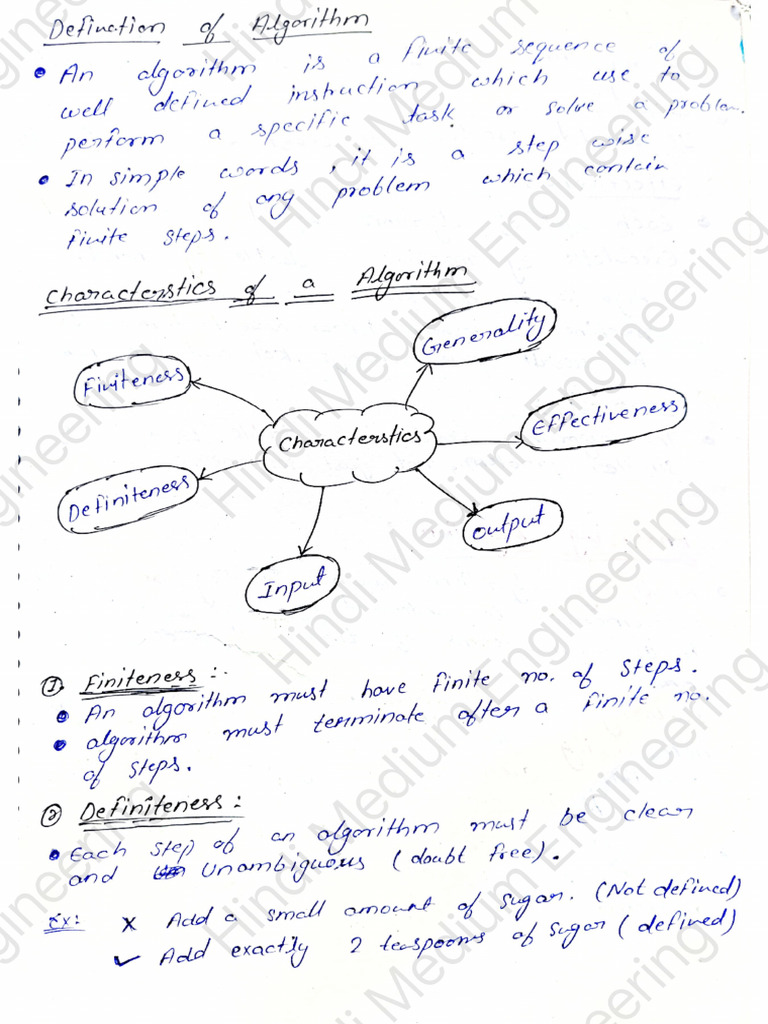 Defination of Algorithm
• An algorithm is a finite sequence of
well defined instruction which use to
perform a specific task or solve a problem.
• In simple words, it is a step wise
solution of any problem which contain
finite steps.
Characterstics of a Algorithm
Generality
Finiteness
Effectiveness
Characterstics
Definiteness
Output
Input
① Finiteness :-
• An algorithm must have finite no. of steps.
• algorithm must terminate after a finite no.
of steps.
② Definiteness :
• Each step of an algorithm must be clear
and unambiguous (doubt free).
Ex: × Add a small amount of sugar. (Not defined)
✓ Add exactly 2 teaspoons of sugar (defined)
Hindi Medium Engineering